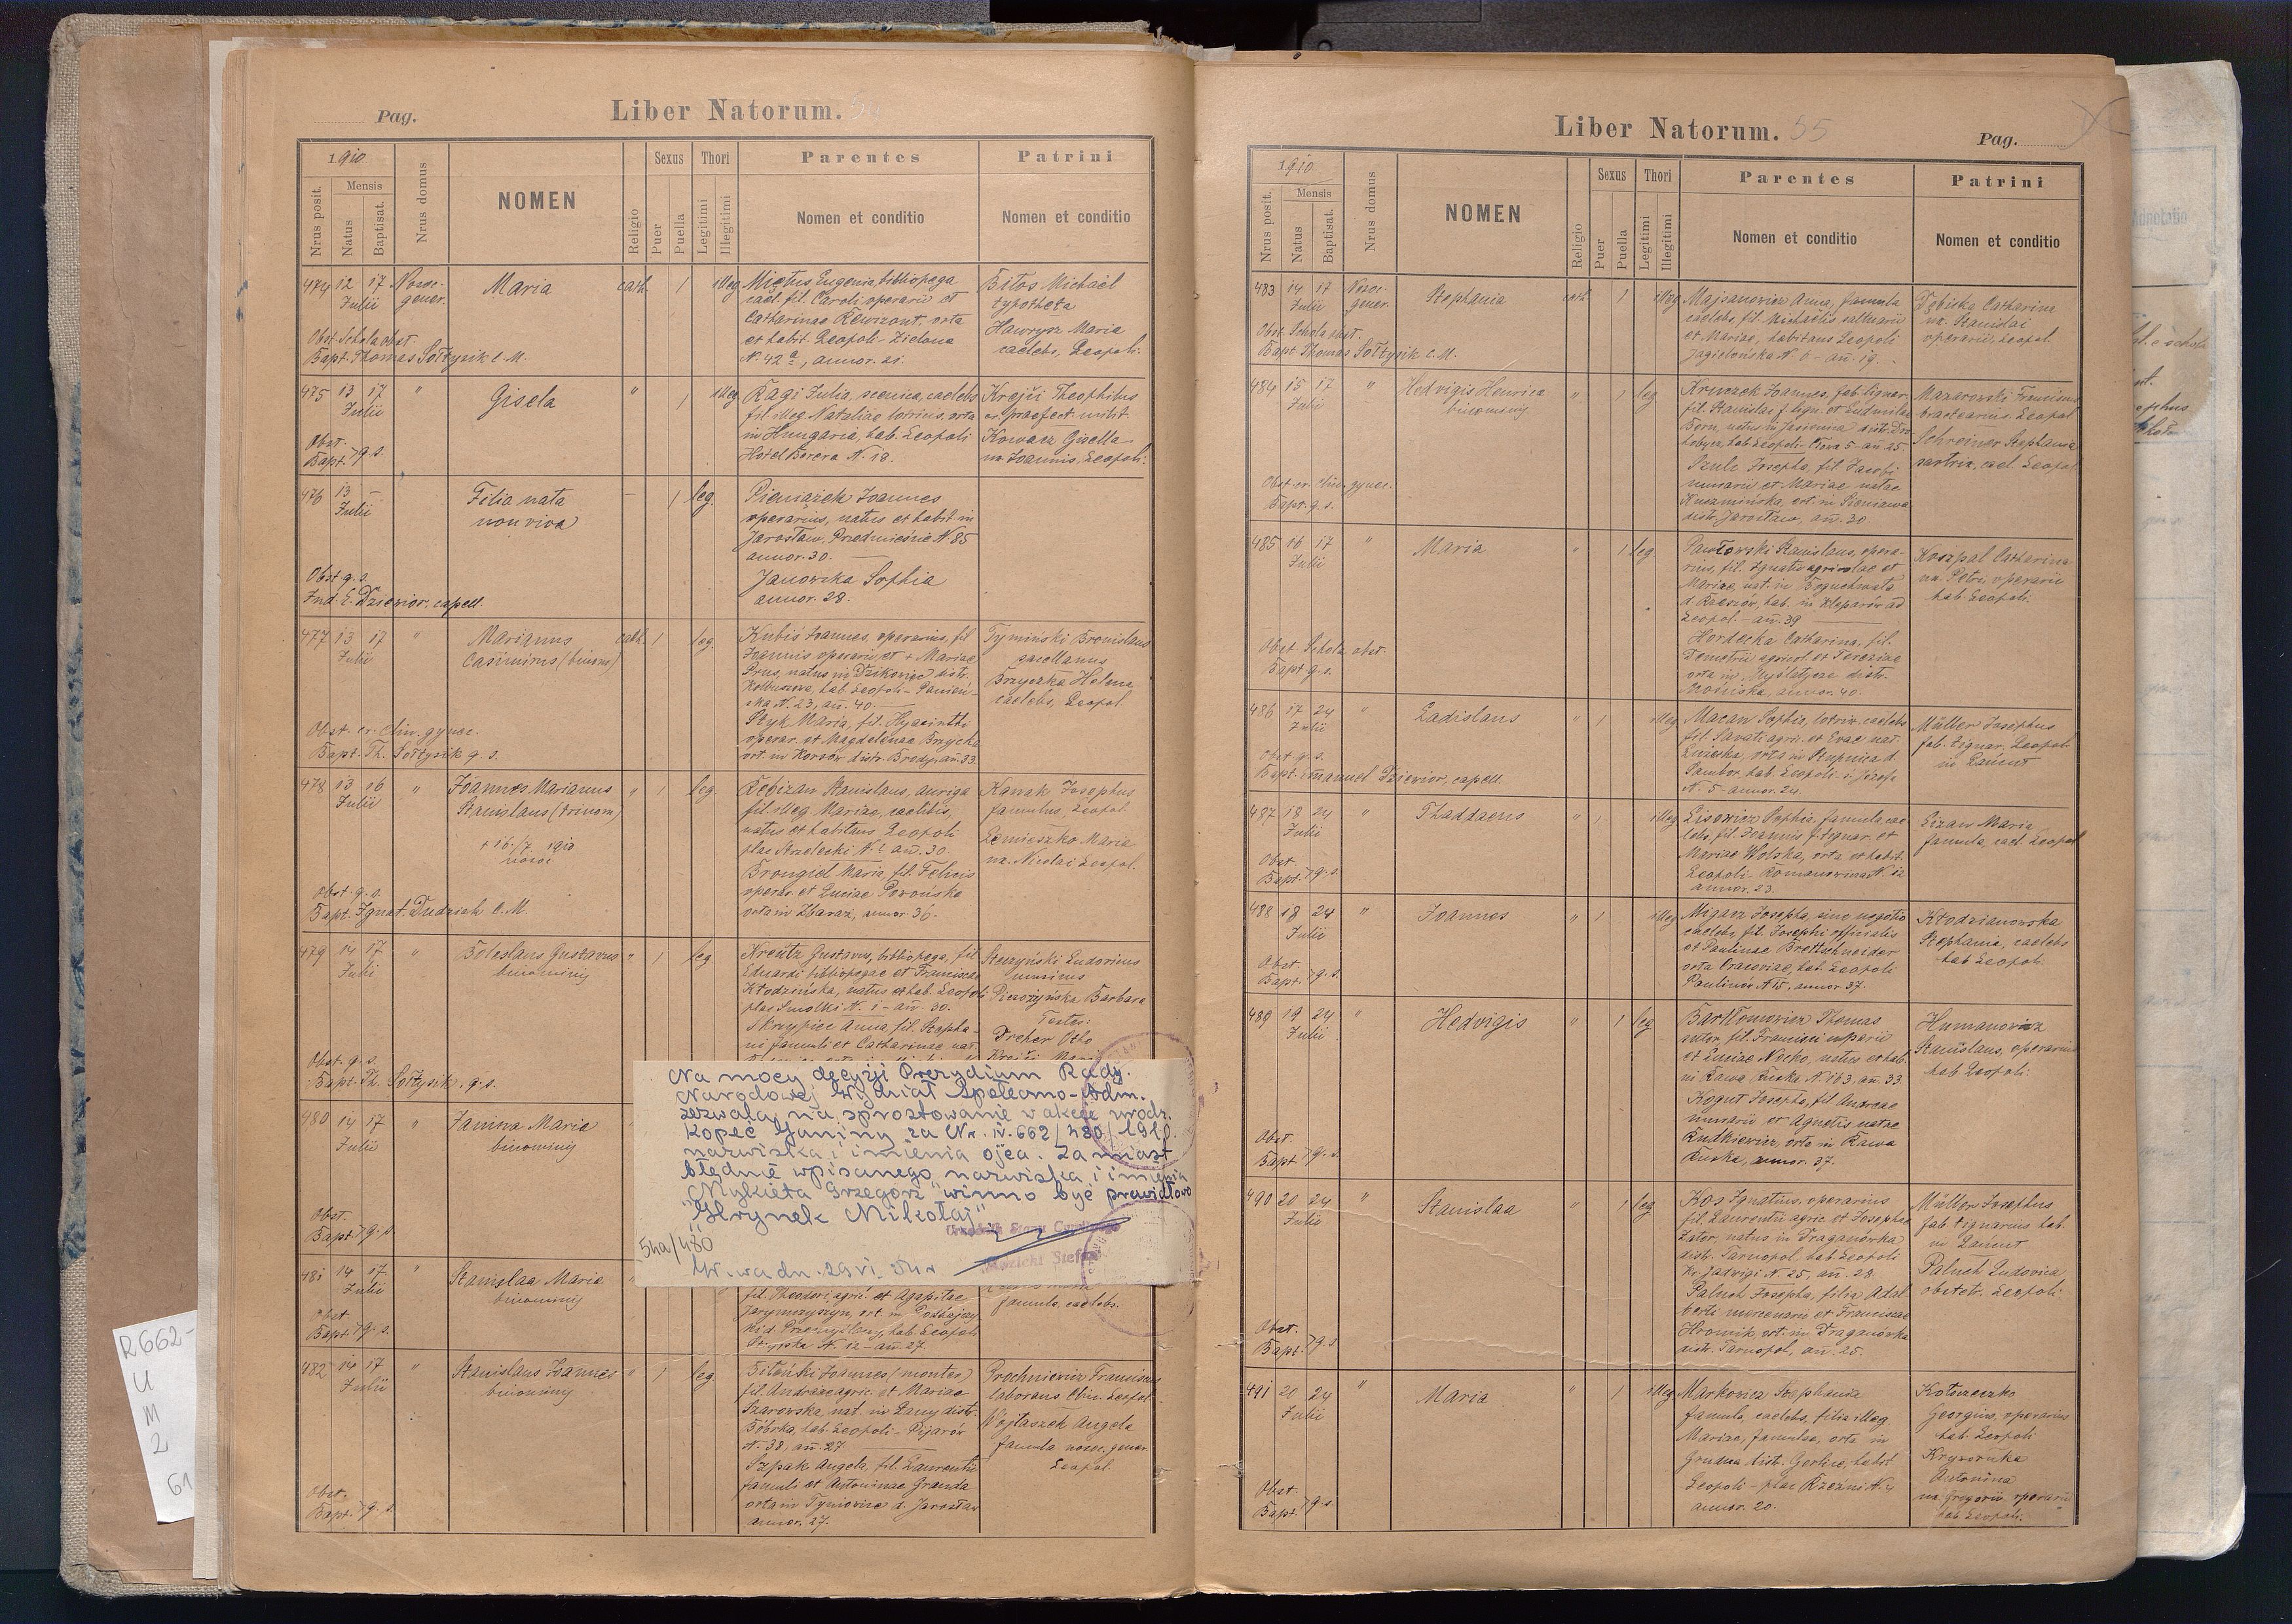 Pag.
Liber Natorum.
1910.
Nrus posit.
Mensis
Natus
Baptisat.
Nrus domus
NOMEN
Religio
Sexus
Puer
Puella
Thori
Legitimi
Illegitimi
Parentes
Nomen et conditio
Patrini
Nomen et conditio
474 12 17 Nosoc.
Julii gener.
Maria
cath. 1 illeg.
Miętus Eugenia, bibliopega
cael. fil. Caroli operarii et
Catharinae Rewizont, orta
et habit. Leopoli Zielona
N. 42 a, annor. 21.
Bilos Michaël
typotheta
Hawrysz Maria
caelebs, Leopoli.
Obst. Schola obst.
Bapt. Thomas Sołtysik C. M.
475 13 17 "
Julii
Gisela
" 1 illeg.
Ragi Julia, scenica, caelebs
fil. illeg. Nataliae lotricis, orta
in Hungaria, hab. Leopoli
Hotel Borera N. 18.
Krejči Theophilus
er. praefect. milit.
Kowacz Gisella
ux. Joannis, Leopoli.
Obst.
Bapt. q. s.
476 13 —
Julii
Filia nata
non viva
— 1 leg.
Pieniążek Joannes
operarius, natus et habit. in
Jarosław, Przedmieście N 85
annor. 30.
Janowska Sophia
annor. 28.
Obst. q. s.
Ind. E. Dziewior, capell.
477 13 17 "
Julii
Marianus
Casimirus (binom)
cath. 1 leg.
Kubiś Joannes, operarius, fil.
Joannis operarii et + Mariae
Prus, natus in Dzikowiec distr.
Kolbuszowa, hab. Leopoli - Panień-
ska N. 23, an. 40.
Styk Maria, fil. Hyacinthi
operar. et Magdalenae Brzycka
ort. in Korsów distr. Brody, an. 33.
Tyminski Bronislaus
sacellanus
Brzyczka Helena
caelebs, Leopol.
Obst. er. Clin. gynec.
Bapt. Th. Sołtysik q. s.
478 13 16 "
Julii
Joannes Marianus
Stanislaus (trinom)
+ 16/7 1910
" 1 leg.
Stanislaus, auriga
fil. illeg. Mariae, caelebis,
natus et habitans Leopoli
plac Strzelecki N. 1 an. 30.
Maria, fil. Felicis
operar. et Luciae
orta in Zbaraz, annor. 36.
Kanak Josephus
famulus, Leopol.
Lemieszko Maria
ux. Nicolai Leopol.
Obst. q. s.
Bapt. Ignat. Dudziak C. M.
479 14 17 "
Julii
Boleslaus Gustavus
binominis
" 1 leg.
Kreutz Gustavus, bibliopega, fil.
Eduardi bibliopegae et Franciscae
Kłodzińska, natus et hab. Leopoli
plac Smolki N. 1 - an. 30.
Skrzypiec Anna, fil. Stepha-
ni famuli et Catharinae nat.
Steczyński Ludovicus
musicus
Barbara
Testes:
Dreher Otto
Obst. q. s.
Bapt. Th. Sołtysik, q. s.
480 14 17 "
Julii
Janina Maria
binominis
Obst.
Bapt. q. s.
Na mocy decyzji Prezydium Rady
Narodowej Wydział Społeczno-Adm.
zezwala na sprostowanie w akcie urodz.
Kopeć Janiny za Nr. IV-662/480/1910.
nazwiska i imienia ojca. Zamiast
błędnie wpisanego nazwiska i imienia
"Mykieta Grzegorz" winno być prawidłowo
"Hrynek Mikołaj"
54a/480
481 14 17 "
Julii
Stanislaa Maria
binominis
fil. Theodori, agric. et Agapitae
famula, caelebs.
Obst.
Bapt. q. s.
482 14 17 "
Julii
Stanislaus Joannes
binominis
" 1 leg.
Joannes (monter)
fil. Andreae agric. et Mariae
Szarowska, nat. in Łany distr.
Bóbrka, hab. Leopoli - Pijarów
N. 38, an. 27.
Szpak Angela, fil. Laurentii
famuli et Antoninae Granda
orta in Tyniowice d. Jarosław
annor. 27.
Prochniewicz Franciscus
laborans Clin. Leopol.
Wojtaszek Angela
famula nosoc. gener.
Leopol.
Obst.
Bapt. q. s.
Liber Natorum. 55
Pag.
1910.
Nrus posit.
Mensis
Natus
Baptisat.
Nrus domus
NOMEN
Religio
Sexus
Puer
Puella
Thori
Legitimi
Illegitimi
Parentes
Nomen et conditio
Patrini
Nomen et conditio
483 14 17 Nosoc.
Julii gener.
Stephania
cath. 1 illeg.
Majsanowicz Anna, famula
caelebs, fil. Michaelis saltuarii
et Mariae, habitans Leopoli
Jagielońska N. 6 - an. 19.
Catharina
ux. Stanislai
operarii, Leopol.
Obst. Schola obst.
Bapt. Thomas Sołtysik C. M.
484 15 17 "
Julii
Hedvigis Henrica
binominis
" 1 leg.
Kruczek Joannes, fab. lignar.
fil. Stanislai f. lign. et Ludmilae
Bern, natus in Jasienica distr. Dro-
hobycz, hab. Leopoli - 5 - an. 25.
Szulc Josepha, fil. Jacobi
murarii et Mariae natae
Kuzmińska, ort. in Sieniawa
distr. Jarosław, an. 30
Mazarowski Franciscus
bractearius. Leopol.
Schreiner Stephania
sartrix, cael. Leopol.
Obst. er. Clin. gynec.
Bapt. q. s.
485 16 17 "
Julii
Maria
" 1 leg.
Pawłowski Stanislaus, opera-
rius, fil. Ignatii agricolae et
Mariae, nat. in Boguchwała
d. Rzeszów, hab. in Kleparów ad
Leopol. - an. 39
Hordecka Catharina, fil.
Demetrii agricol. et Teresiae
orta in Myślatycze distr.
Mościska, annor. 40.
Koszpal Catharina
ux. Petri, operarii
hab. Leopoli.
Obst. Schola obst.
Bapt. q. s.
486 17 24 "
Julii
Ladislaus
" 1 illeg.
Macan Sophia, lotrix, caelebs
fil. Savati agric. et Evae nat.
orta in Stupnica d.
Sambor, hab. Leopoli - s. Józefa
N. 5 - annor. 24.
Müller Josephus
fab. lignar. Leopol.
in Łańcut
Obst. q. s.
Bapt. Emanuel Dziewior, capell.
487 18 24 "
Julii
Thaddaeus
" 1 illeg.
Lisowicz Sophia, famula, cae-
lebs, fil. Joannis f. lignar. et
Mariae Wolska, orta et habit.
Leopoli - Romanowicza N. 12
annor. 23.
Lizan Maria
famula, cael. Leopol.
Obst.
Bapt. q. s.
488 18 24 "
Julii
Joannes
" 1 illeg.
Migacz Josepha, sine negotio
caelebs, fil. Josephi officialis
et Paulinae Brettschneider
orta Cracoviae, hab. Leopoli
Paulinów N 15, annor. 37.
Kłodzianowska
Stephania, caelebs
hab. Leopoli.
Obst.
Bapt. q. s.
489 19 24 "
Julii
Hedvigis
" 1 leg.
Bartłomowicz Thomas
sutor, fil. Francisci
et Luciae Nocko, natus et hab.
in Rawa Ruska N. 163. an. 33.
Kogut Josepha, fil. Andreae
murarii et Agnetis natae
Rudkiewicz, orta in Rawa
Ruska, annor. 37.
Humanowicz
Stanislaus, operarius
hab. Leopoli.
Obst.
Bapt. q. s.
490 20 24 "
Julii
Stanislaa
" 1 leg.
Kos Ignatius, operarius
fil. Laurentii agric. et Josephae
Zator, natus in Draganówka
distr. Tarnopol, hab. Leopoli
Kr. Jadwigi N. 25, an. 28.
Paluch Josepha, filia Adal-
berti mercenarii et Franciscae
Hromik ort. in Draganówka
distr. Tarnopol, an. 25.
Müller Josephus
fab. lignarius hab.
in Łańcut
Paluch Ludovica
obstetr. Leopoli
Obst.
Bapt. q. s.
491 20 24 "
Julii
Maria
" 1 illeg.
Markowicz Stephania
famula, caelebs, filia illeg.
Mariae, famulae, orta in
Grudna distr. Gorlice, habit.
Leopoli - plac Rzeźni N. 4
annor. 20.
Kotoszeczko
Georgius, operarius
hab. Leopoli
Antonina
ux. Gregorii, operarii
hab. Leopoli.
Obst.
Bapt. q. s.
R 662-
U
M
2
61